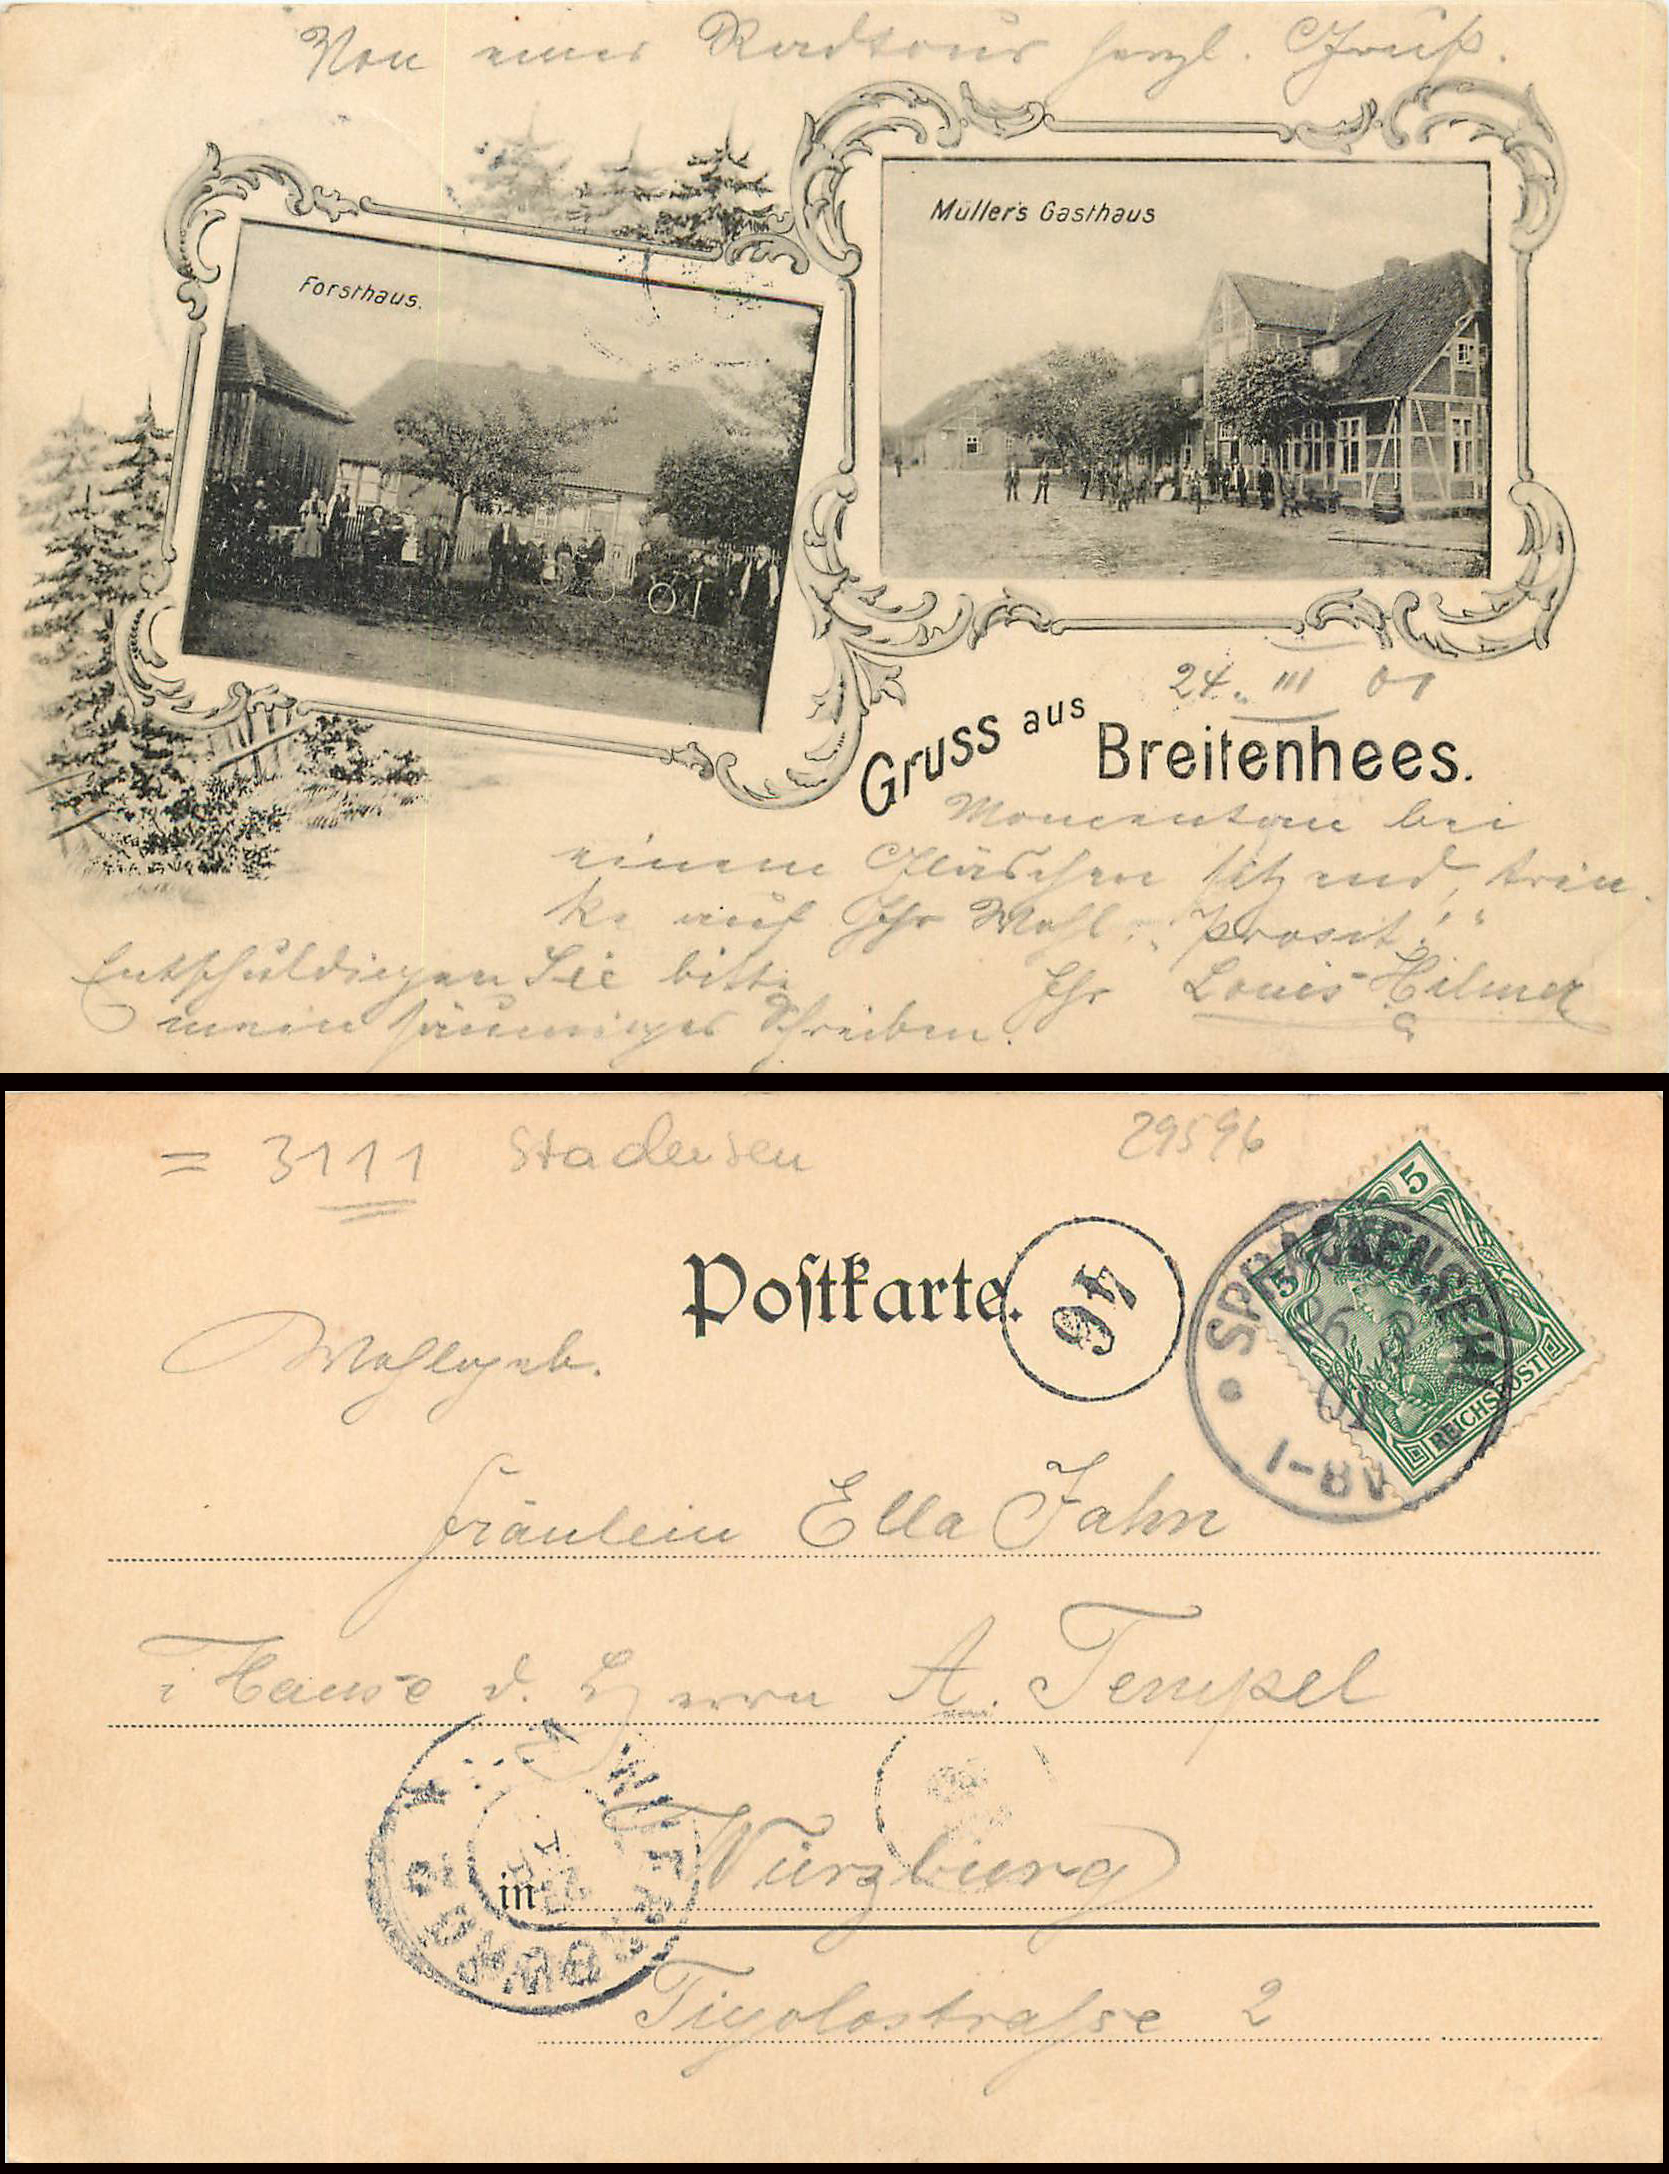 Von einer Radtour herzl. Gruß.
Müller's Gasthaus
Forsthaus.
24. III 01
Gruss aus Breitenhees.
Momentan bei
einem Gläschen sitzend, trin
ke auf Ihr Wohl. „Prosit!"
Entschuldigen Sie bitte
mein säumiges Schreiben.
Ihr Louis Hilmer
= 3111 Stadensen
29596
5
5
REICHSPOST
SPRAKENSEHL
26 3
01
1-8V
Postkarte.
46
Wohlgeb.
Fräulein Ella Jahn
i Hause d. Herrn A. Tempel
in Würzburg
Tiyolostraße 2